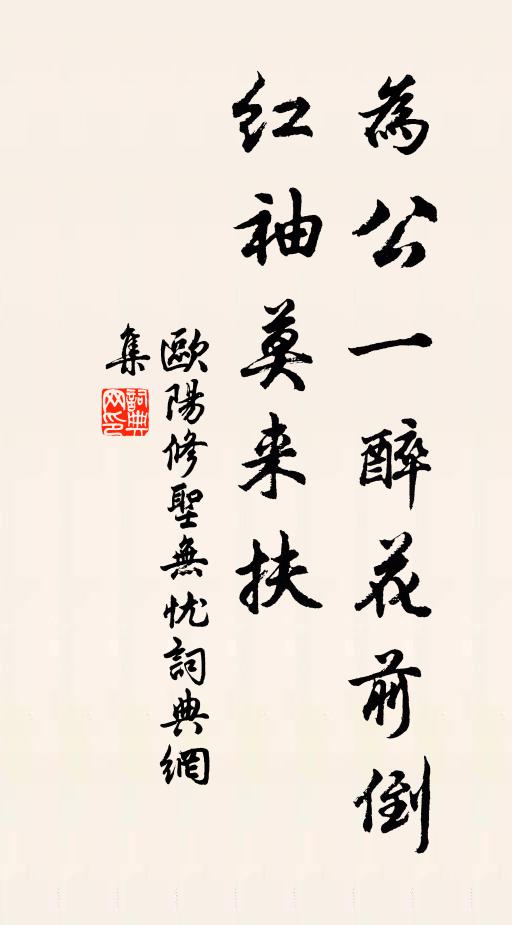 為公一醉花前倒
红袖莫来扶
歐陽修聖無忧詞典網
集
詞典
网印